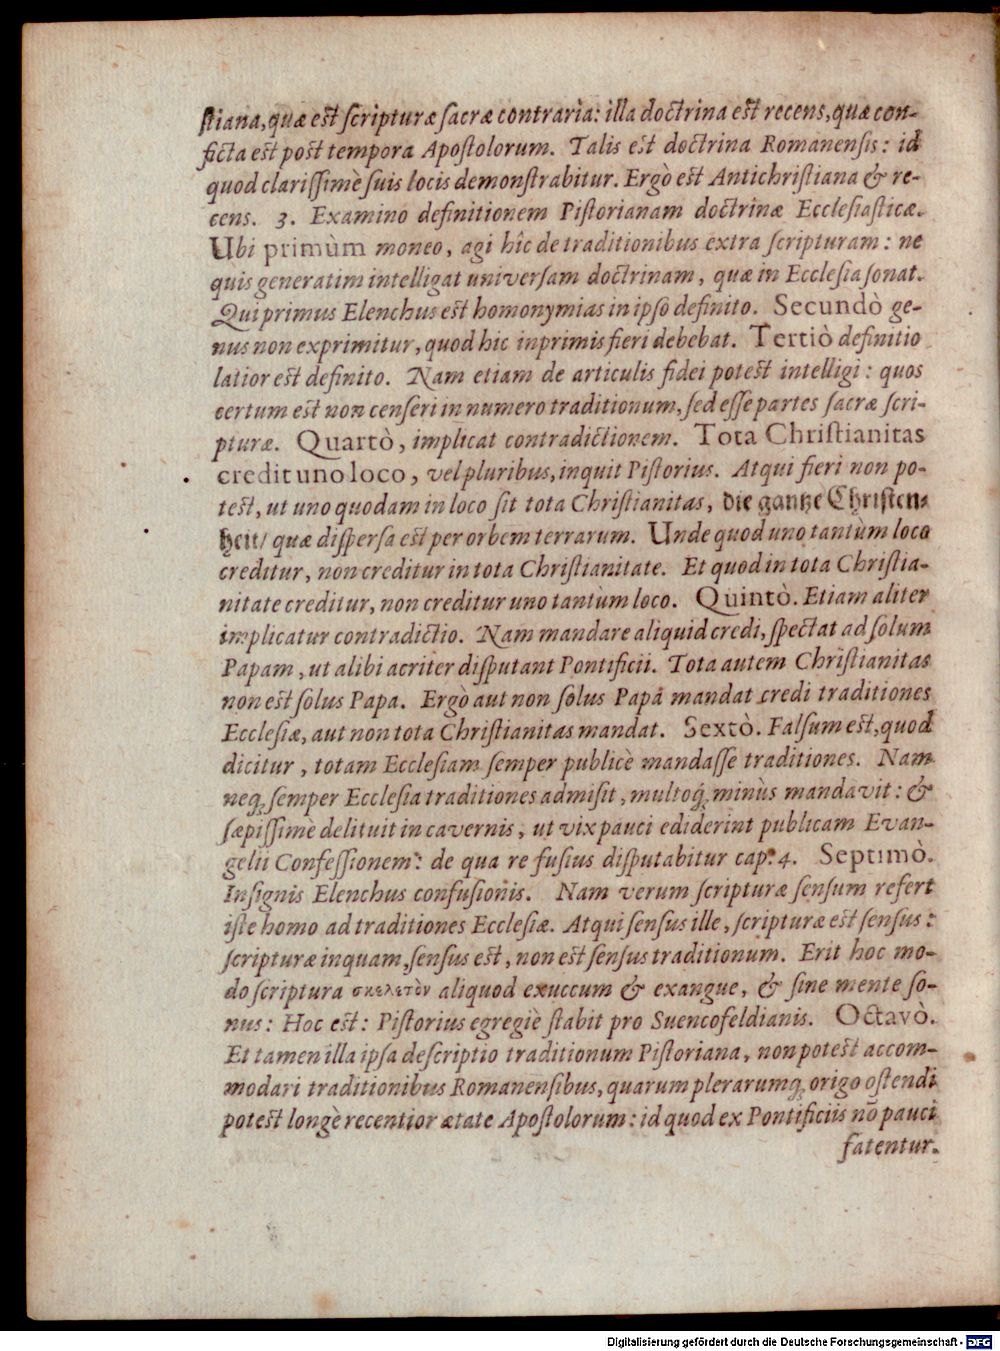 ſtiana, quæ est ſcripturæ ſacræ contraria: illa doctrina est recens, quæ con-
ficta est post tempora Apoſtolorum. Talis est doctrina Romanensis: id
quod clariſſimè ſuis locis demonſtrabitur. Ergò est Antichriſtiana & re-
cens. 3. Examino definitionem Piſtorianam doctrinæ Eccleſiaſticæ.
Ubi primùm moneo, agi hîc de traditionibus extra ſcripturam: ne
quis generatim intelligat univerſam doctrinam, quæ in Eccleſia ſonat.
Qui primus Elenchus est homonymias in ipſo definito. Secundò ge-
nus non exprimitur, quod hic inprimis fieri debebat. Tertiò definitio
latior est definito. Nam etiam de articulis fidei potest intelligi: quos
certum est non cenſeri in numero traditionum, ſed eſſe partes ſacræ ſcri-
pturæ. Quartò, implicat contradictionem. Tota Chriſtianitas
credit uno loco, vel pluribus, inquit Piſtorius. Atqui fieri non po-
test, ut uno quodam in loco ſit tota Chriſtianitas, die gantze Chriſten-
heit/ quæ diſperſa est per orbem terrarum. Unde quod uno tantùm loco
creditur, non creditur in tota Chriſtianitate. Et quod in tota Chriſtia-
nitate creditur, non creditur uno tantum loco. Quintò. Etiam aliter
implicatur contradictio. Nam mandare aliquid credi, ſpectat ad ſolum
Papam, ut alibi acriter diſputant Pontificii. Tota autem Chriſtianitas
non est ſolus Papa. Ergò aut non ſolus Papa mandat credi traditiones
Eccleſiæ, aut non tota Chriſtianitas mandat. Sextò. Falſum est, quod
dicitur, totam Eccleſiam ſemper publicè mandaſſe traditiones. Nam
neq; ſemper Eccleſia traditiones admiſit, multoq́; minùs mandavit: &
ſæpiſſimè delituit in cavernis, ut vix pauci ediderint publicam Evan-
gelii Confeſſionem: de qua re fuſius diſputabitur cap. 4. Septimò.
Inſignis Elenchus confuſionis. Nam verum ſcripturæ ſenſum refert
iſte homo ad traditiones Eccleſiæ. Atqui ſenſus ille, ſcripturæ est ſenſus:
ſcripturæ inquam, ſenſus est, non est ſenſus traditionum. Erit hoc mo-
do ſcriptura σκελετὸν aliquod exuccum & exangue, & ſine mente ſo-
nus: Hoc est: Piſtorius egregiè ſtabit pro Suencofeldianis. Octavò.
Et tamen illa ipſa deſcriptio traditionum Piſtoriana, non potest accom-
modari traditionibus Romanenſibus, quarum plerarumq; origo oſtendi
potest longè recentior ætate Apoſtolorum: id quod ex Pontificiis nō pauci
fatentur.
Digitalisierung gefördert durch die Deutsche Forschungsgemeinschaft - DFG